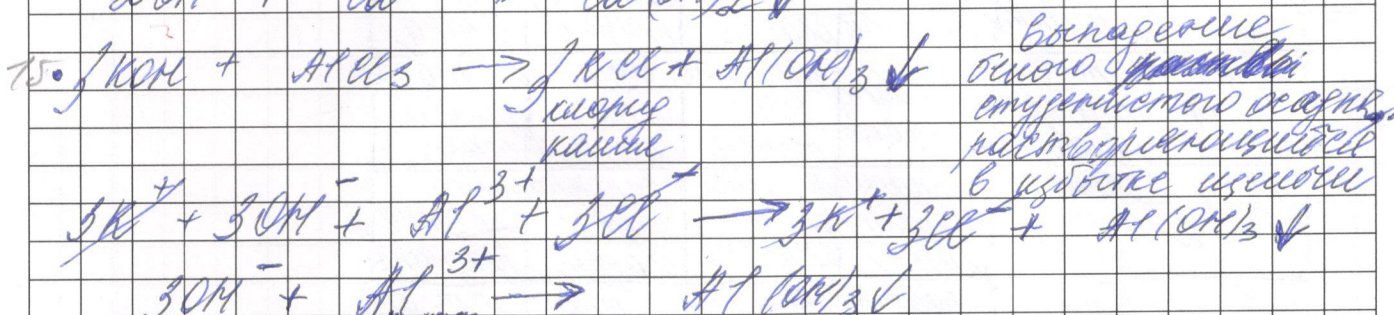 15. 3KOH + AlCl3 → 3KCl + Al(OH)3↓
хлорид
калия
выпадение
белого
студенистого осадка,
растворяющийся
в избытке щелочи
3K⁺ + 3OH⁻ + Al³⁺ + 3Cl⁻ → 3K⁺ + 3Cl⁻ + Al(OH)3↓
3OH⁻ + Al³⁺ → Al(OH)3↓